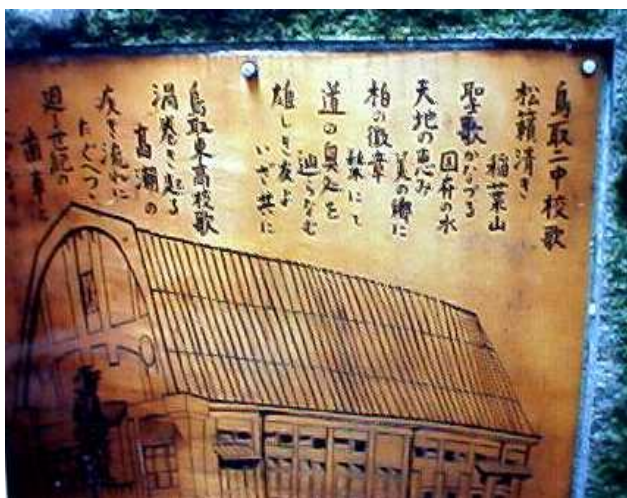 鳥取二中校歌
松籟清き
稲葉山
聖歌かなづる
国府の水
天地の恵み
美の郷に
柏の徽章
にて
道の奥処を
辿らなむ
雄しき友よ
いざ共に
鳥取東高校歌
渦巻き起る
高潮の
疾き流れに
たぐへつゝ
世紀の